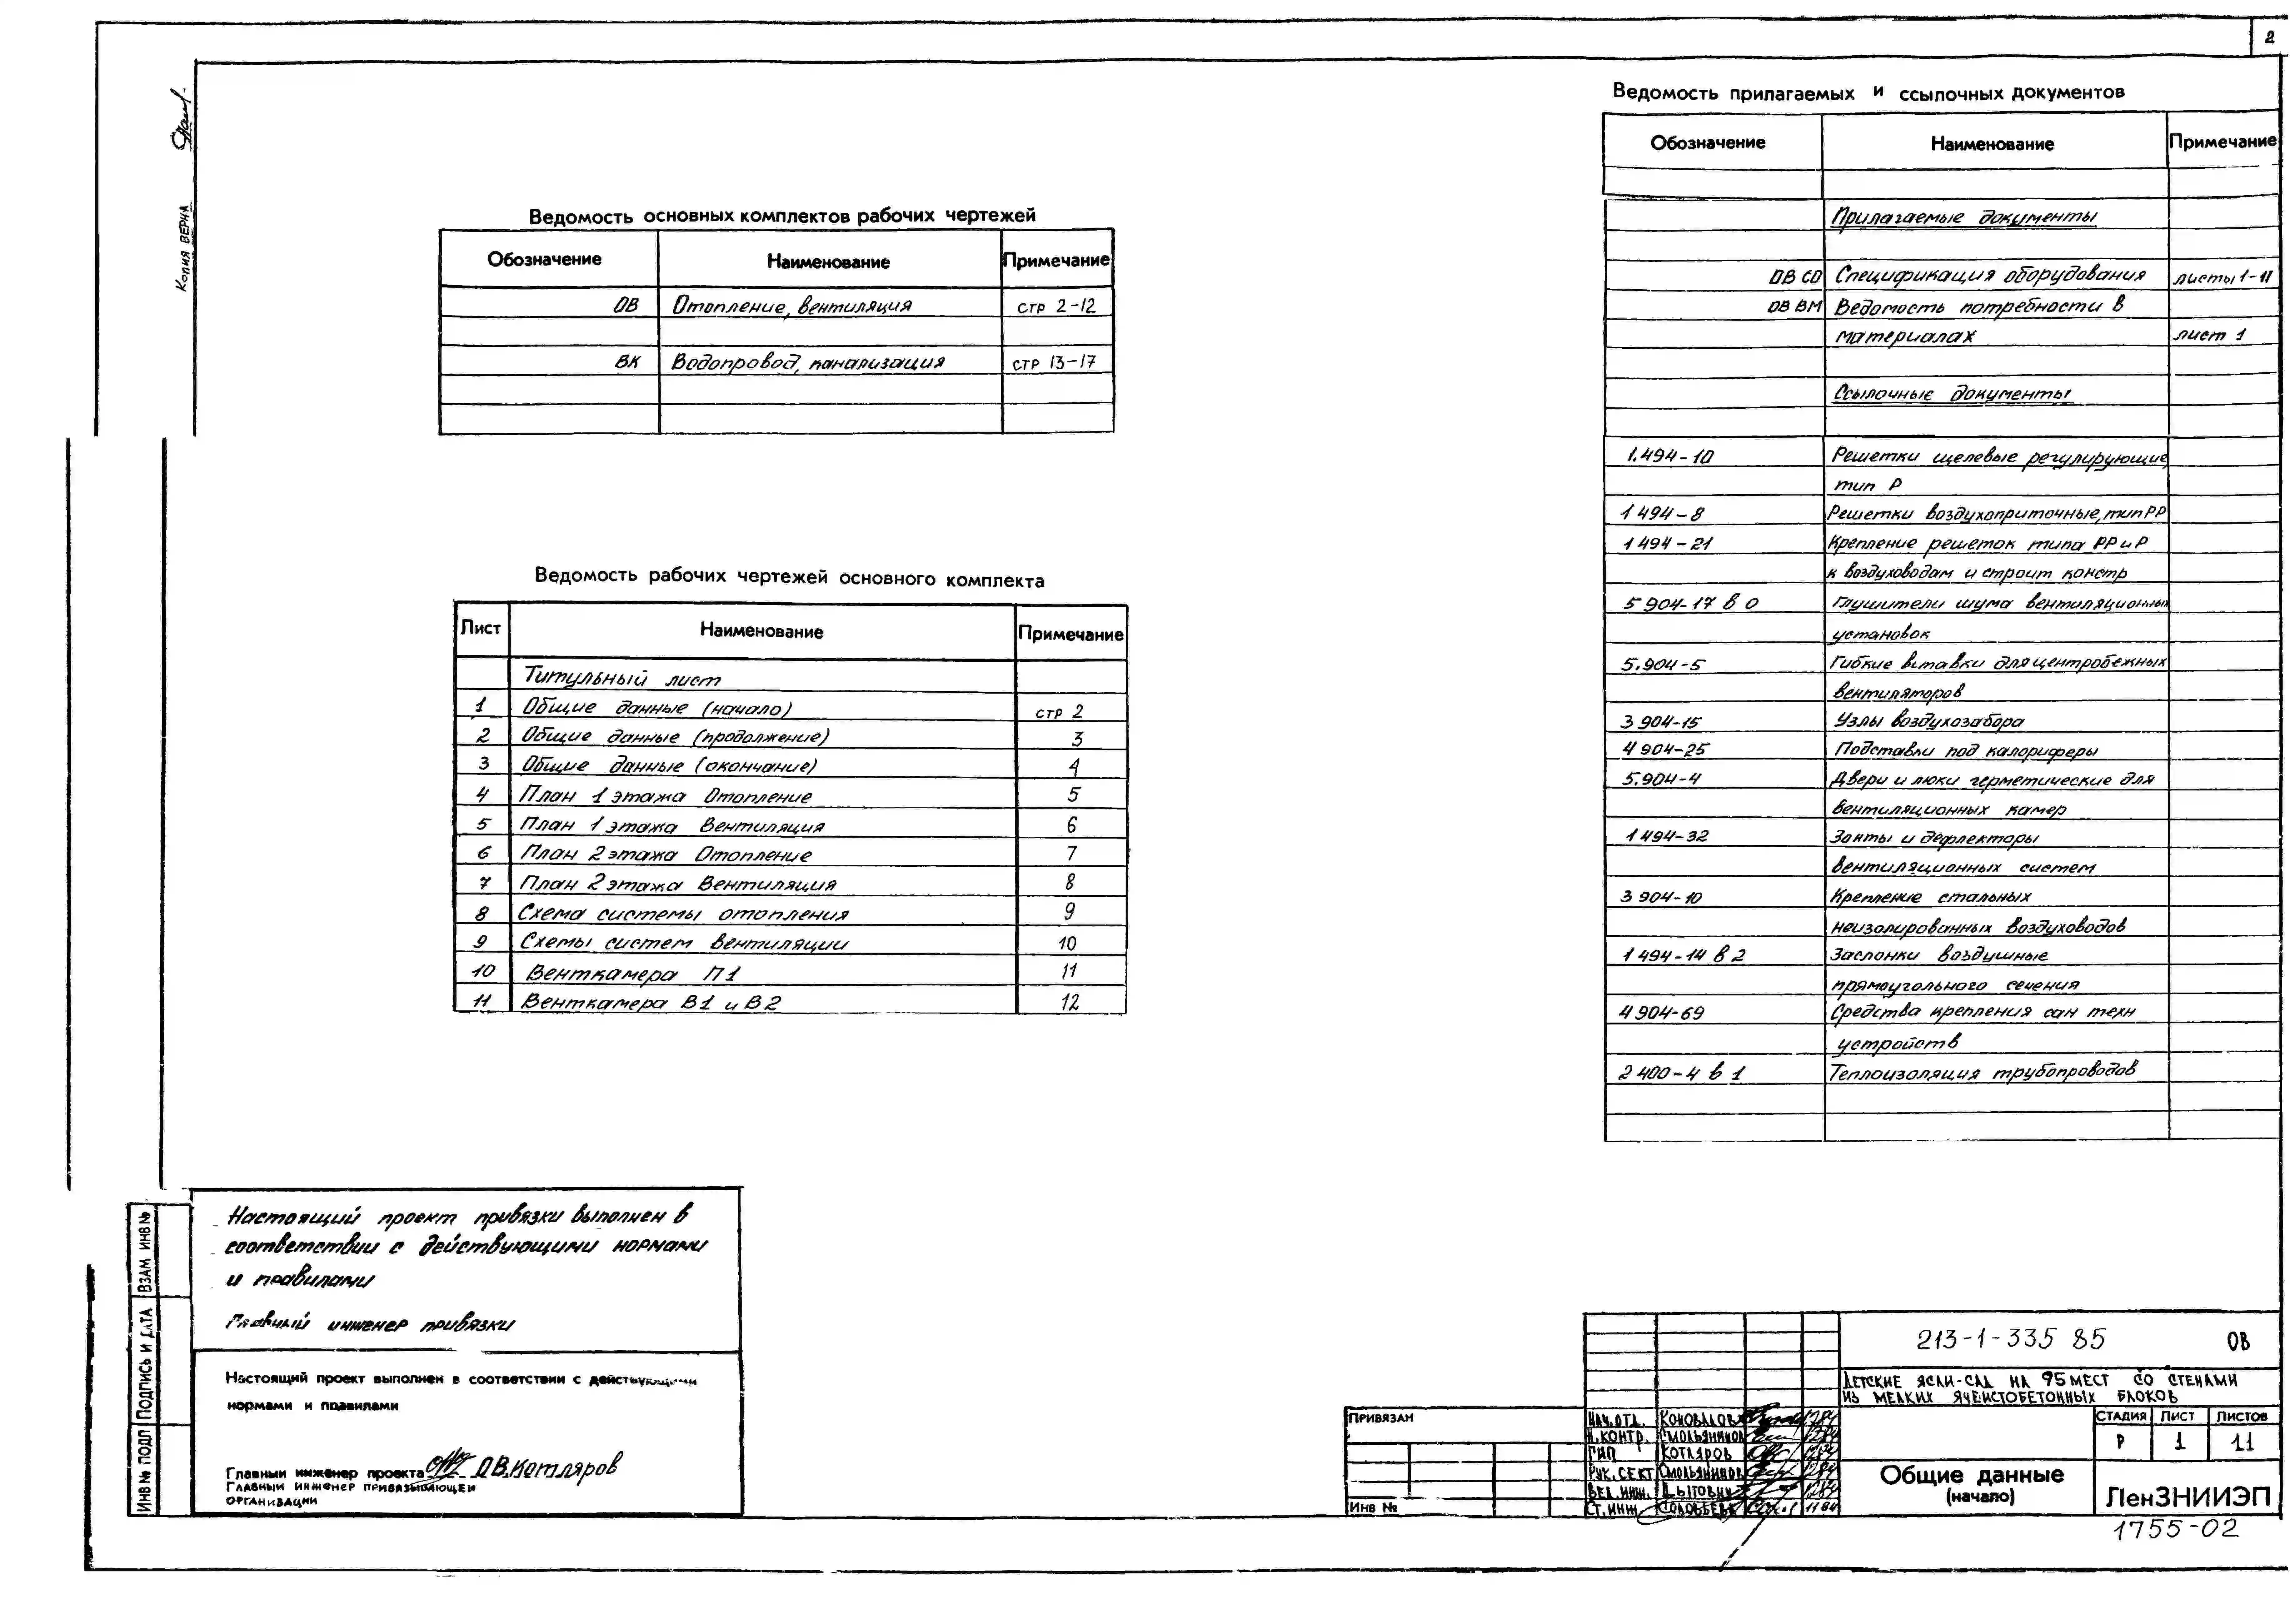 2
Копия ВЕРНА
Ведомость основных комплектов рабочих чертежей
Обозначение Наименование Примечание
ОВ Отопление, вентиляция стр 2-12
ВК Водопровод, канализация стр 13-17
Ведомость рабочих чертежей основного комплекта
Лист Наименование Примечание
Титульный лист
1 Общие данные (начало) стр 2
2 Общие данные (продолжение) 3
3 Общие данные (окончание) 4
4 План 1 этажа Отопление 5
5 План 1 этажа Вентиляция 6
6 План 2 этажа Отопление 7
7 План 2 этажа Вентиляция 8
8 Схема системы отопления 9
9 Схемы систем вентиляции 10
10 Венткамера П1 11
11 Венткамера В1 и В2 12
Ведомость прилагаемых и ссылочных документов
Обозначение Наименование Примечание
Прилагаемые документы
ОВ СО Спецификация оборудования листы 1-11
ОВ ВМ Ведомость потребности в
материалах лист 1
Ссылочные документы
1.494-10 Решетки щелевые регулирующие
тип Р
1 494-8 Решетки воздухоприточные, тип РР
1 494-21 Крепление решеток типа РР и Р
к воздуховодам и строит констр
5 904-17 в 0 Глушители шума вентиляционных
установок
5.904-5 Гибкие вставки для центробежных
вентиляторов
3 904-15 Узлы воздухозабора
4 904-25 Подставки под калориферы
5.904-4 Двери и люки герметические для
вентиляционных камер
1 494-32 Зонты и дефлекторы
вентиляционных систем
3 904-10 Крепление стальных
неизолированных воздуховодов
1 494-14 в 2 Заслонки воздушные
прямоугольного сечения
4 904-69 Средства крепления сан техн
устройств
2 400-4 в 1 Теплоизоляция трубопроводов
Настоящий проект привязки выполнен в
соответствии с действующими нормами
и правилами
Главный инженер привязки
Настоящий проект выполнен в соответствии с действующими
нормами и правилами
Главный инженер проекта О.В.Котляров
Главный инженер привязывающей
организации
Инв № подл Подпись и дата Взам инв №
Привязан
Инв №
Нач.отд. Коновалов 1284
Н.контр. Смольянинов 1284
ГИП Котляров 1284
Рук.сект Смольянинов 1284
Вед.инж. 1284
Ст.инж Соловьева 11 84
213-1-335 85 ОВ
Детские ясли-сад на 95 мест со стенами
из мелких ячеистобетонных блоков
Стадия Лист Листов
Р 1 11
Общие данные
(начало)
ЛенЗНИИЭП
1755-02